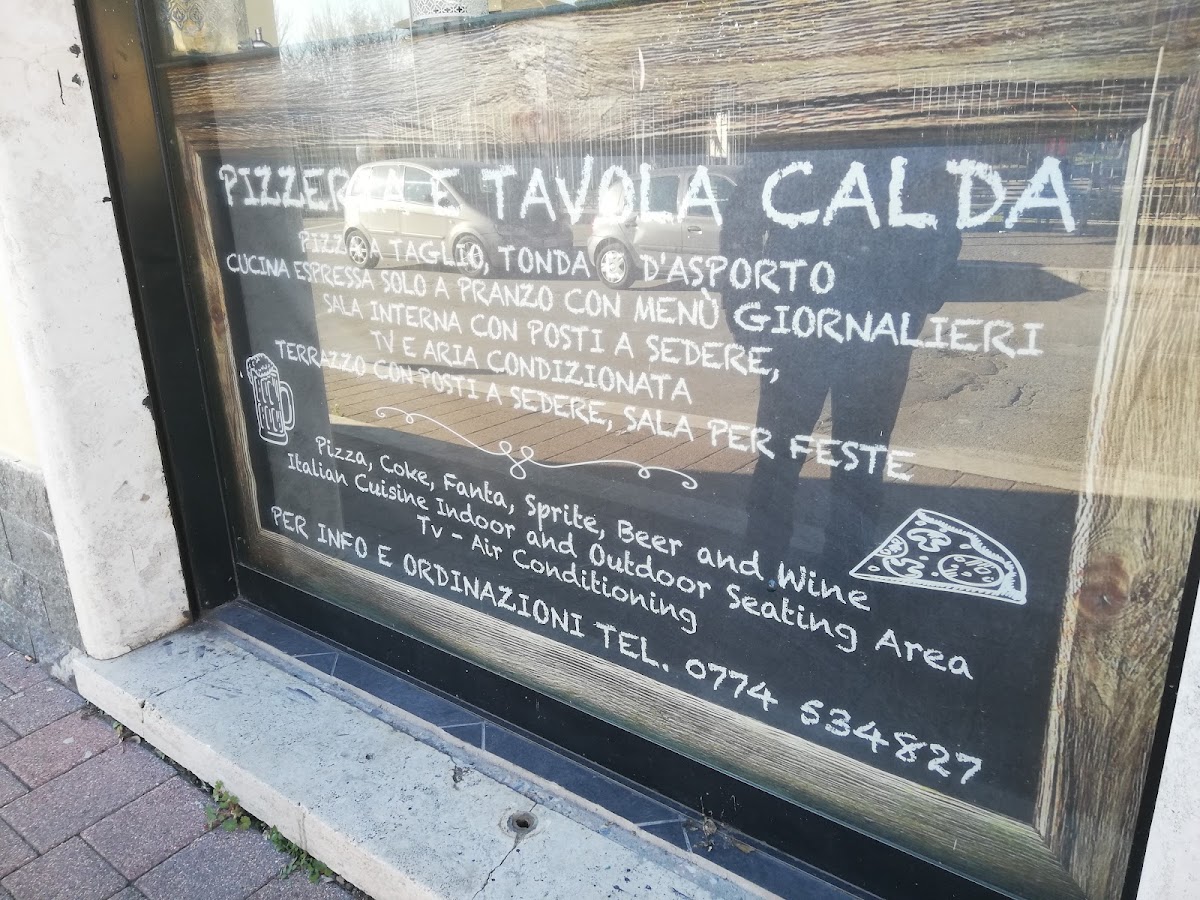 PIZZERIA E TAVOLA CALDA
PIZZA A TAGLIO, TONDA D'ASPORTO
CUCINA ESPRESSA SOLO A PRANZO CON MENÙ GIORNALIERI
SALA INTERNA CON POSTI A SEDERE,
TV E ARIA CONDIZIONATA
TERRAZZO CON POSTI A SEDERE, SALA PER FESTE
Pizza, Coke, Fanta, Sprite, Beer and Wine
Italian Cuisine Indoor and Outdoor Seating Area
Tv - Air Conditioning
PER INFO E ORDINAZIONI TEL. 0774 534827